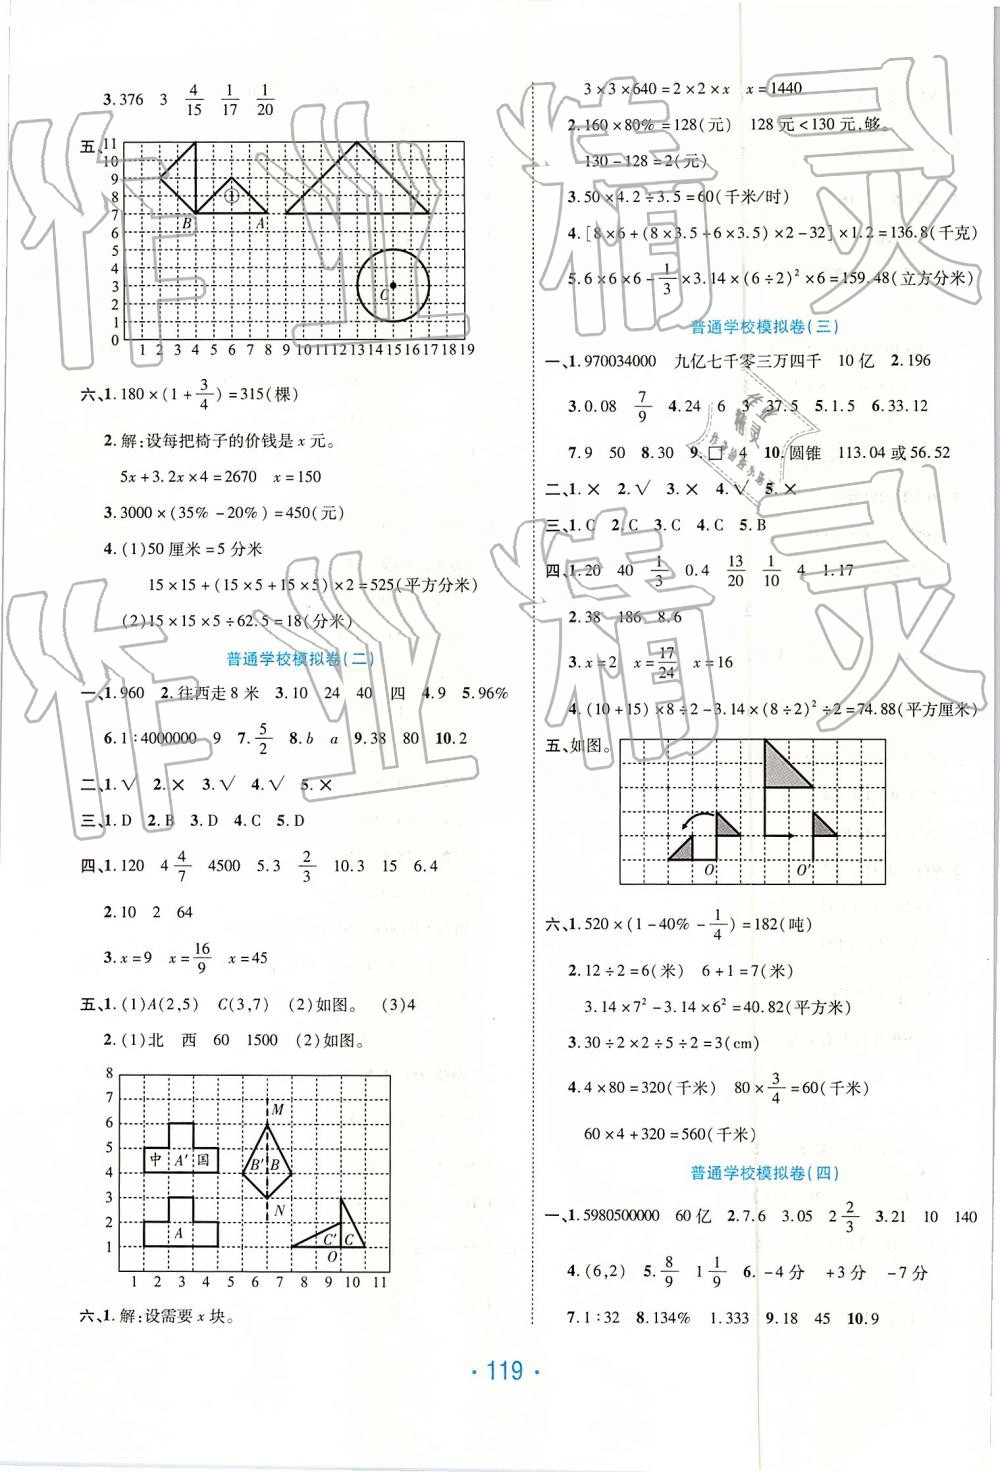 3.376 3 4/15 1/17 1/20
五、
11
10
9
8
7
6
5
4
3
2
1
0
① B A C
1 2 3 4 5 6 7 8 9 10 11 12 13 14 15 16 17 18 19
六、1.180×(1+3/4)=315(棵)
2.解:设每把椅子的价钱是x元。
5x+3.2x×4=2670 x=150
3.3000×(35%-20%)=450(元)
4.(1)50厘米=5分米
15×15+(15×5+15×5)×2=525(平方分米)
(2)15×15×5÷62.5=18(分米)
普通学校模拟卷(二)
一、1.960 2.往西走8米 3.10 24 40 四 4.9 5.96%
6.1∶4000000 9 7.5/2 8.b a 9.38 80 10.2
二、1.√ 2.× 3.√ 4.√ 5.×
三、1.D 2.B 3.D 4.C 5.D
四、1.120 4 4/7 4500 5.3 2/3 10.3 15 6.4
2.10 2 64
3.x=9 x=16/9 x=45
五、1.(1)A(2,5) C(3,7) (2)如图。 (3)4
2.(1)北 西 60 1500 (2)如图。
8
7
6
5
4
3
2
1
M
中 A′ 国 B′ B
N
A C′ C
O
1 2 3 4 5 6 7 8 9 10 11
六、1.解:设需要x块。
3×3×640=2×2×x x=1440
2.160×80%=128(元) 128元<130元,够。
130-128=2(元)
3.50×4.2÷3.5=60(千米/时)
4.[8×6+(8×3.5+6×3.5)×2-32]×1.2=136.8(千克)
5.6×6×6-1/3×3.14×(6÷2)²×6=159.48(立方分米)
普通学校模拟卷(三)
一、1.970034000 九亿七千零三万四千 10亿 2.196
3.0.08 7/9 4.24 6 3 37.5 5.1.5 6.33.12
7.9 50 8.30 9.□ 4 10.圆锥 113.04或56.52
二、1.× 2.√ 3.× 4.√ 5.×
三、1.C 2.C 3.C 4.C 5.B
四、1.20 40 1/3 0.4 13/20 1/10 4 1.17
2.38 186 8.6
3.x=2 x=17/24 x=16
4.(10+15)×8÷2-3.14×(8÷2)²÷2=74.88(平方厘米)
五、如图。
O O′
六、1.520×(1-40%-1/4)=182(吨)
2.12÷2=6(米) 6+1=7(米)
3.14×7²-3.14×6²=40.82(平方米)
3.30÷2×2÷5÷2=3(cm)
4.4×80=320(千米) 80×3/4=60(千米)
60×4+320=560(千米)
普通学校模拟卷(四)
一、1.5980500000 60亿 2.7.6 3.05 2 2/3 3.21 10 140
4.(6,2) 5.8/9 1 1/9 6.-4分 +3分 -7分
7.1∶32 8.134% 1.333 9.18 45 10.9
·119·
作业精灵
作业精灵